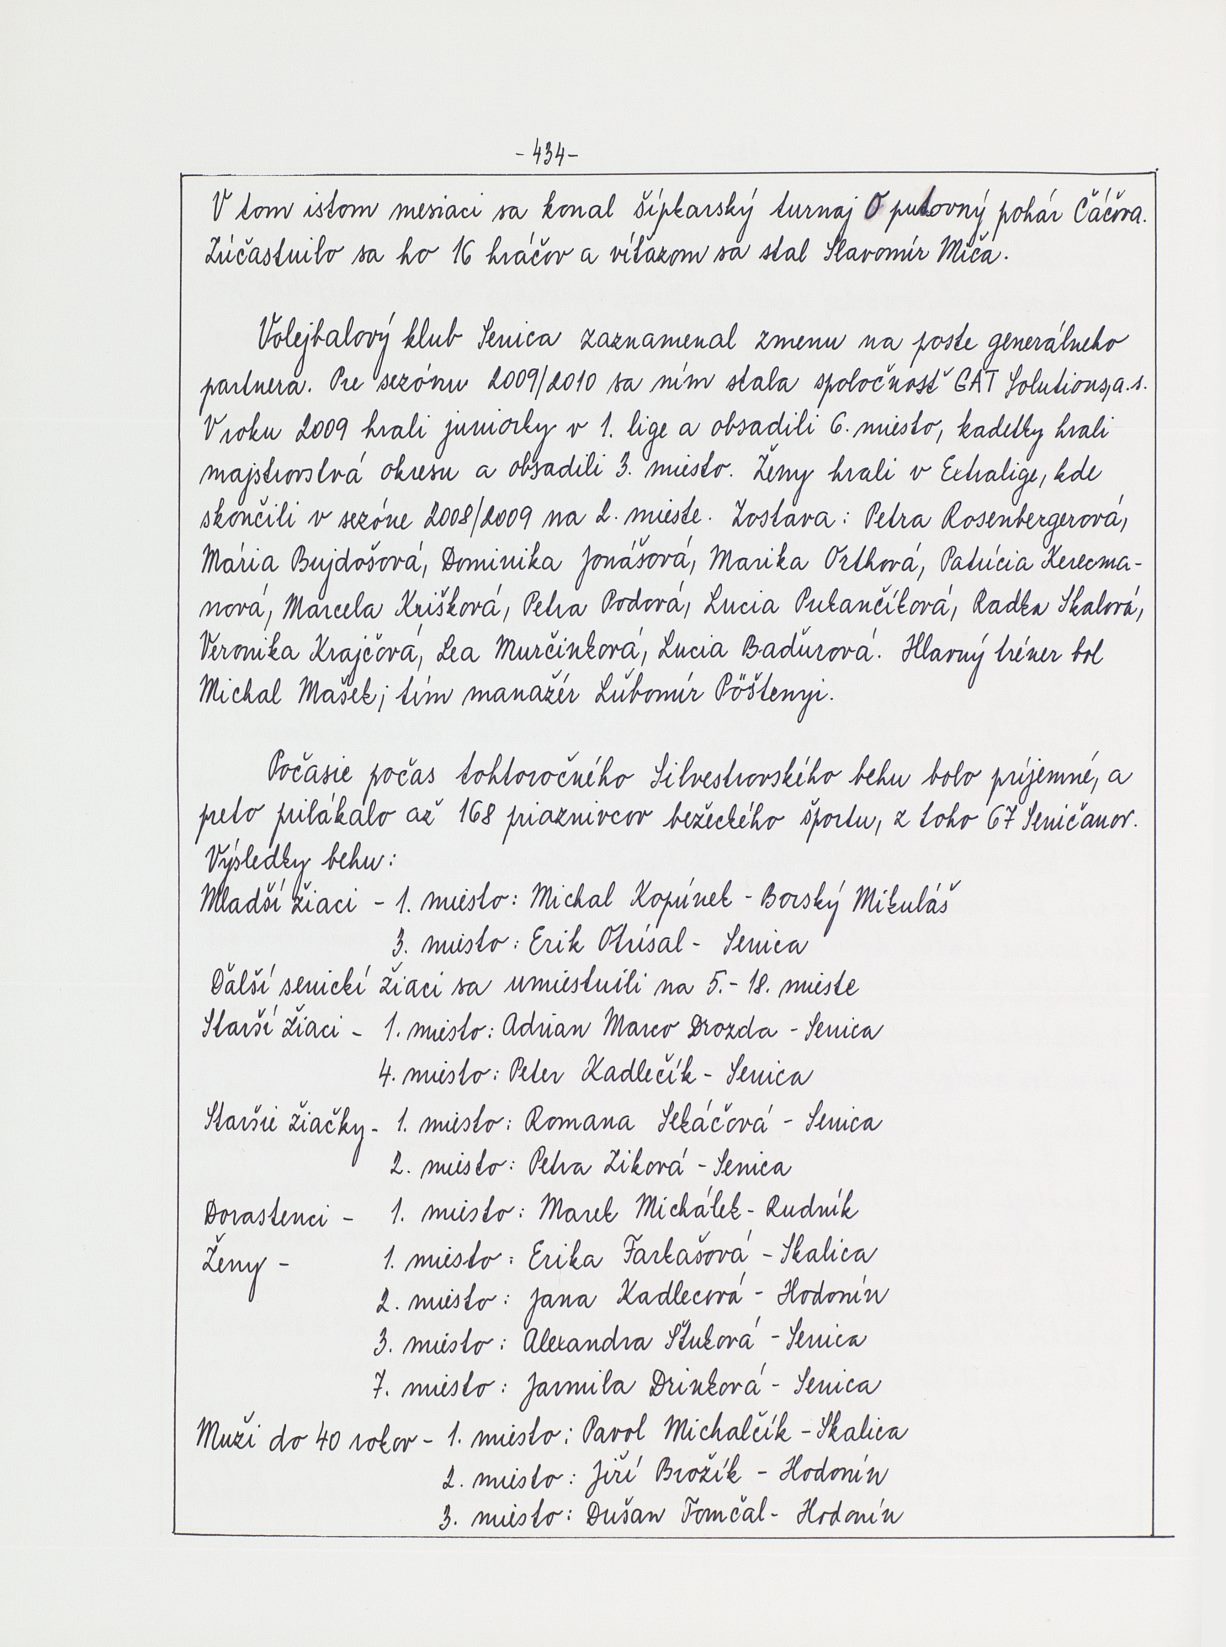 - 434 -
V tom istom mesiaci sa konal šípkarský turnaj O putovný pohár Čáčova.
Zúčastnilo sa ho 16 hráčov a víťazom sa stal Slavomír Miča.
Volejbalový klub Senica zaznamenal zmenu na poste generálneho
partnera. Pre sezónu 2009/2010 sa ním stala spoločnosť GAT Solutions, a.s.
V roku 2009 hrali juniorky v 1. lige a obsadili 6. miesto, kadetky hrali
majstrovstvá okresu a obsadili 3. miesto. Ženy hrali v Extralige, kde
skončili v sezóne 2008/2009 na 2. mieste. Zostava: Petra Rosenbergerová,
Mária Bujdošová, Dominika Jonášová, Marika Orthová, Patrícia Kerecma-
nová, Marcela Krišková, Petra Podová, Lucia Pukančíková, Radka Skalová,
Veronika Krajčová, Lea Murčinková, Lucia Baďurová. Hlavný tréner bol
Michal Mašek; tím manažér Ľubomír Pöštenyi.
Počasie počas tohtoročného Silvestrovského behu bolo príjemné, a
preto prilákalo až 168 priaznivcov bežeckého športu, z toho 67 Seničanov.
Výsledky behu:
Mladší žiaci - 1. miesto: Michal Kopúnek - Borský Mikuláš
3. miesto: Erik Otrísal - Senica
Ďalší senickí žiaci sa umiestnili na 5.- 18. mieste
Starší žiaci - 1. miesto: Adrian Marco Drozda - Senica
4. miesto: Peter Kadlečík - Senica
Staršie žiačky - 1. miesto: Romana Sekáčová - Senica
2. miesto: Petra Ziková - Senica
Dorastenci - 1. miesto: Marek Michálek - Rudník
Ženy - 1. miesto: Erika Farkašová - Skalica
2. miesto: Jana Kadlecová - Hodonín
3. miesto: Alexandra Štuková - Senica
7. miesto: Jarmila Drinková - Senica
Muži do 40 rokov - 1. miesto: Pavol Michalčík - Skalica
2. miesto: Jiří Brožík - Hodonín
3. miesto: Dušan Tomčal - Hodonín